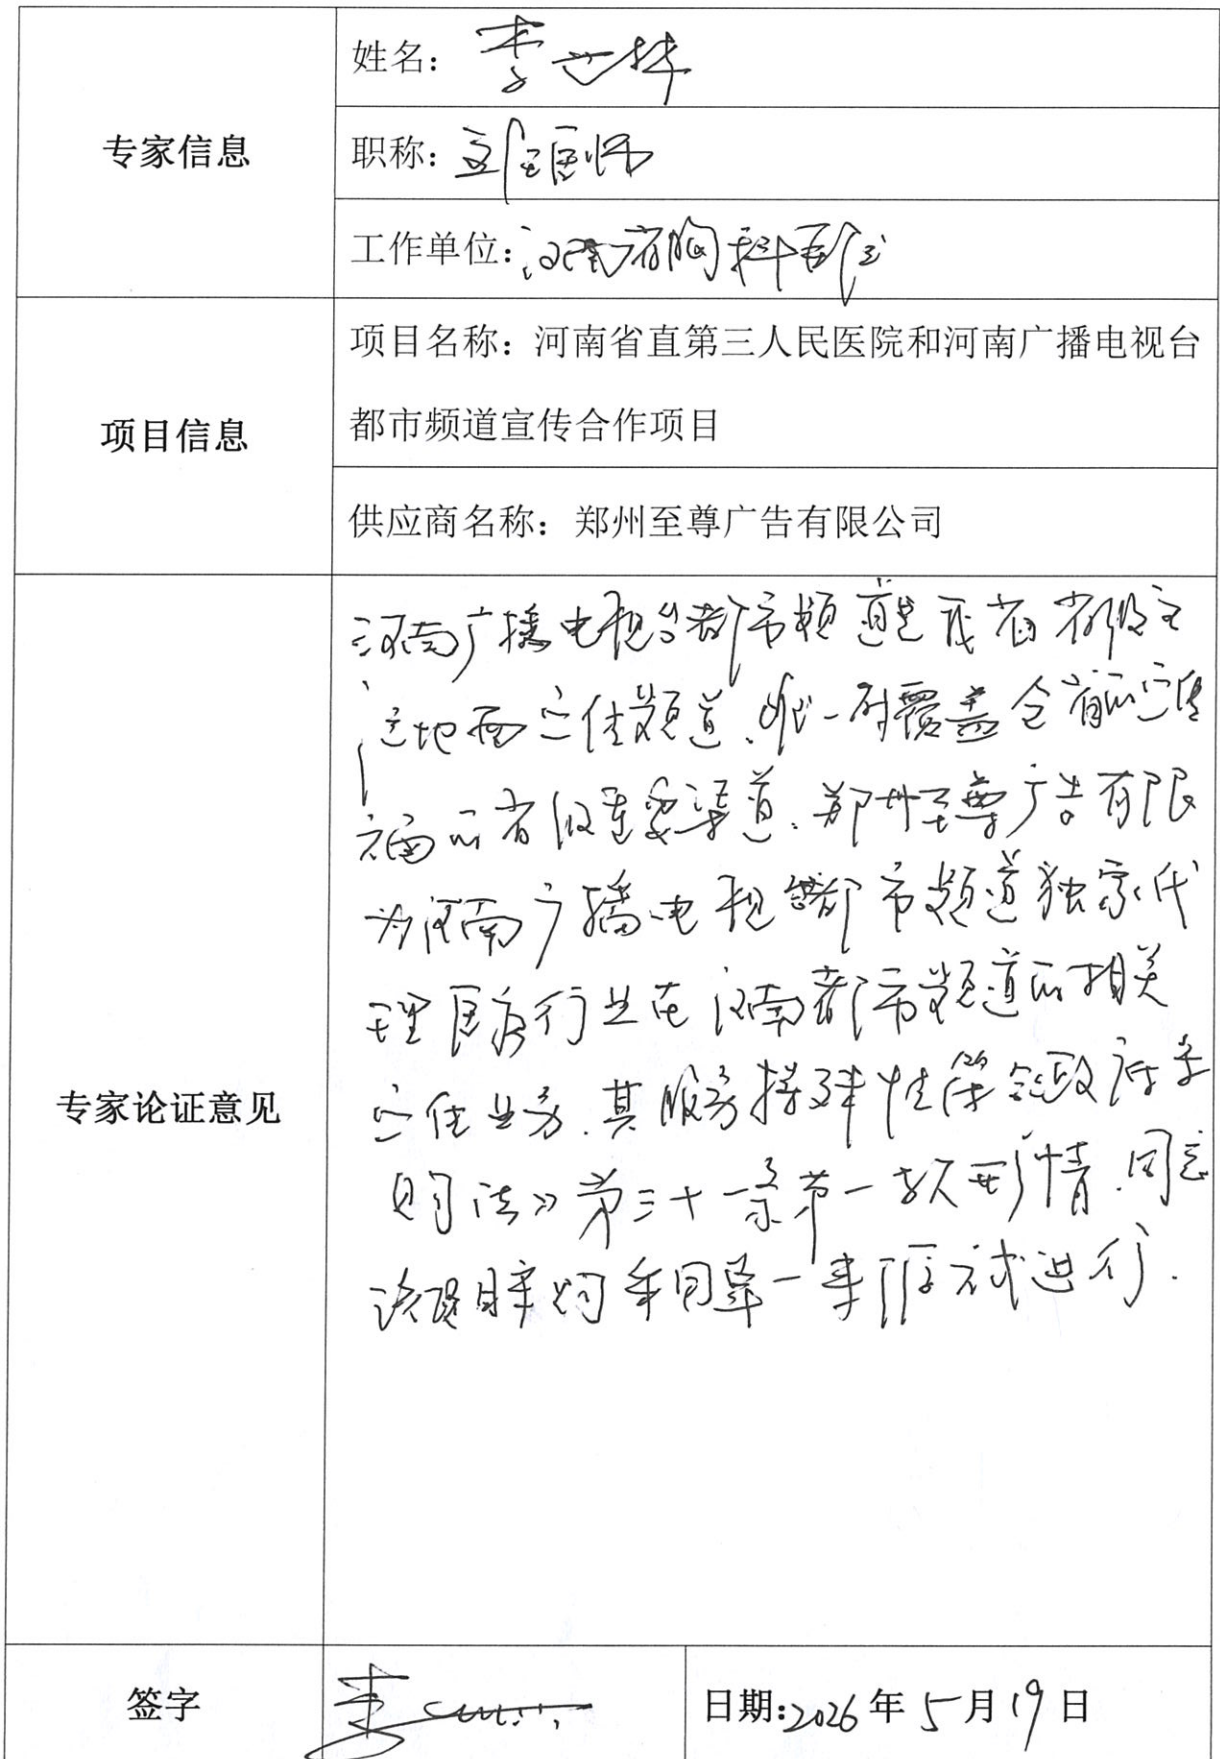 专家信息
姓名：李
职称：主任医师
工作单位：河南省胸科医院
项目信息
项目名称：河南省直第三人民医院和河南广播电视台
都市频道宣传合作项目
供应商名称：郑州至尊广告有限公司
专家论证意见
河南广播电视台都市频道是我省省级主
地面宣传频道、唯一时覆盖全省的宣传
的省级重要渠道.郑州至尊广告有限
为河南广播电视台都市频道独家代
理医疗行业在河南都市频道的相关
宣传业务.其服务特殊性符合政府采
购法》第三十一条第一款形情.同意
该项目采购采用单一来源方式进行.
签字
李
日期:2026年5月19日